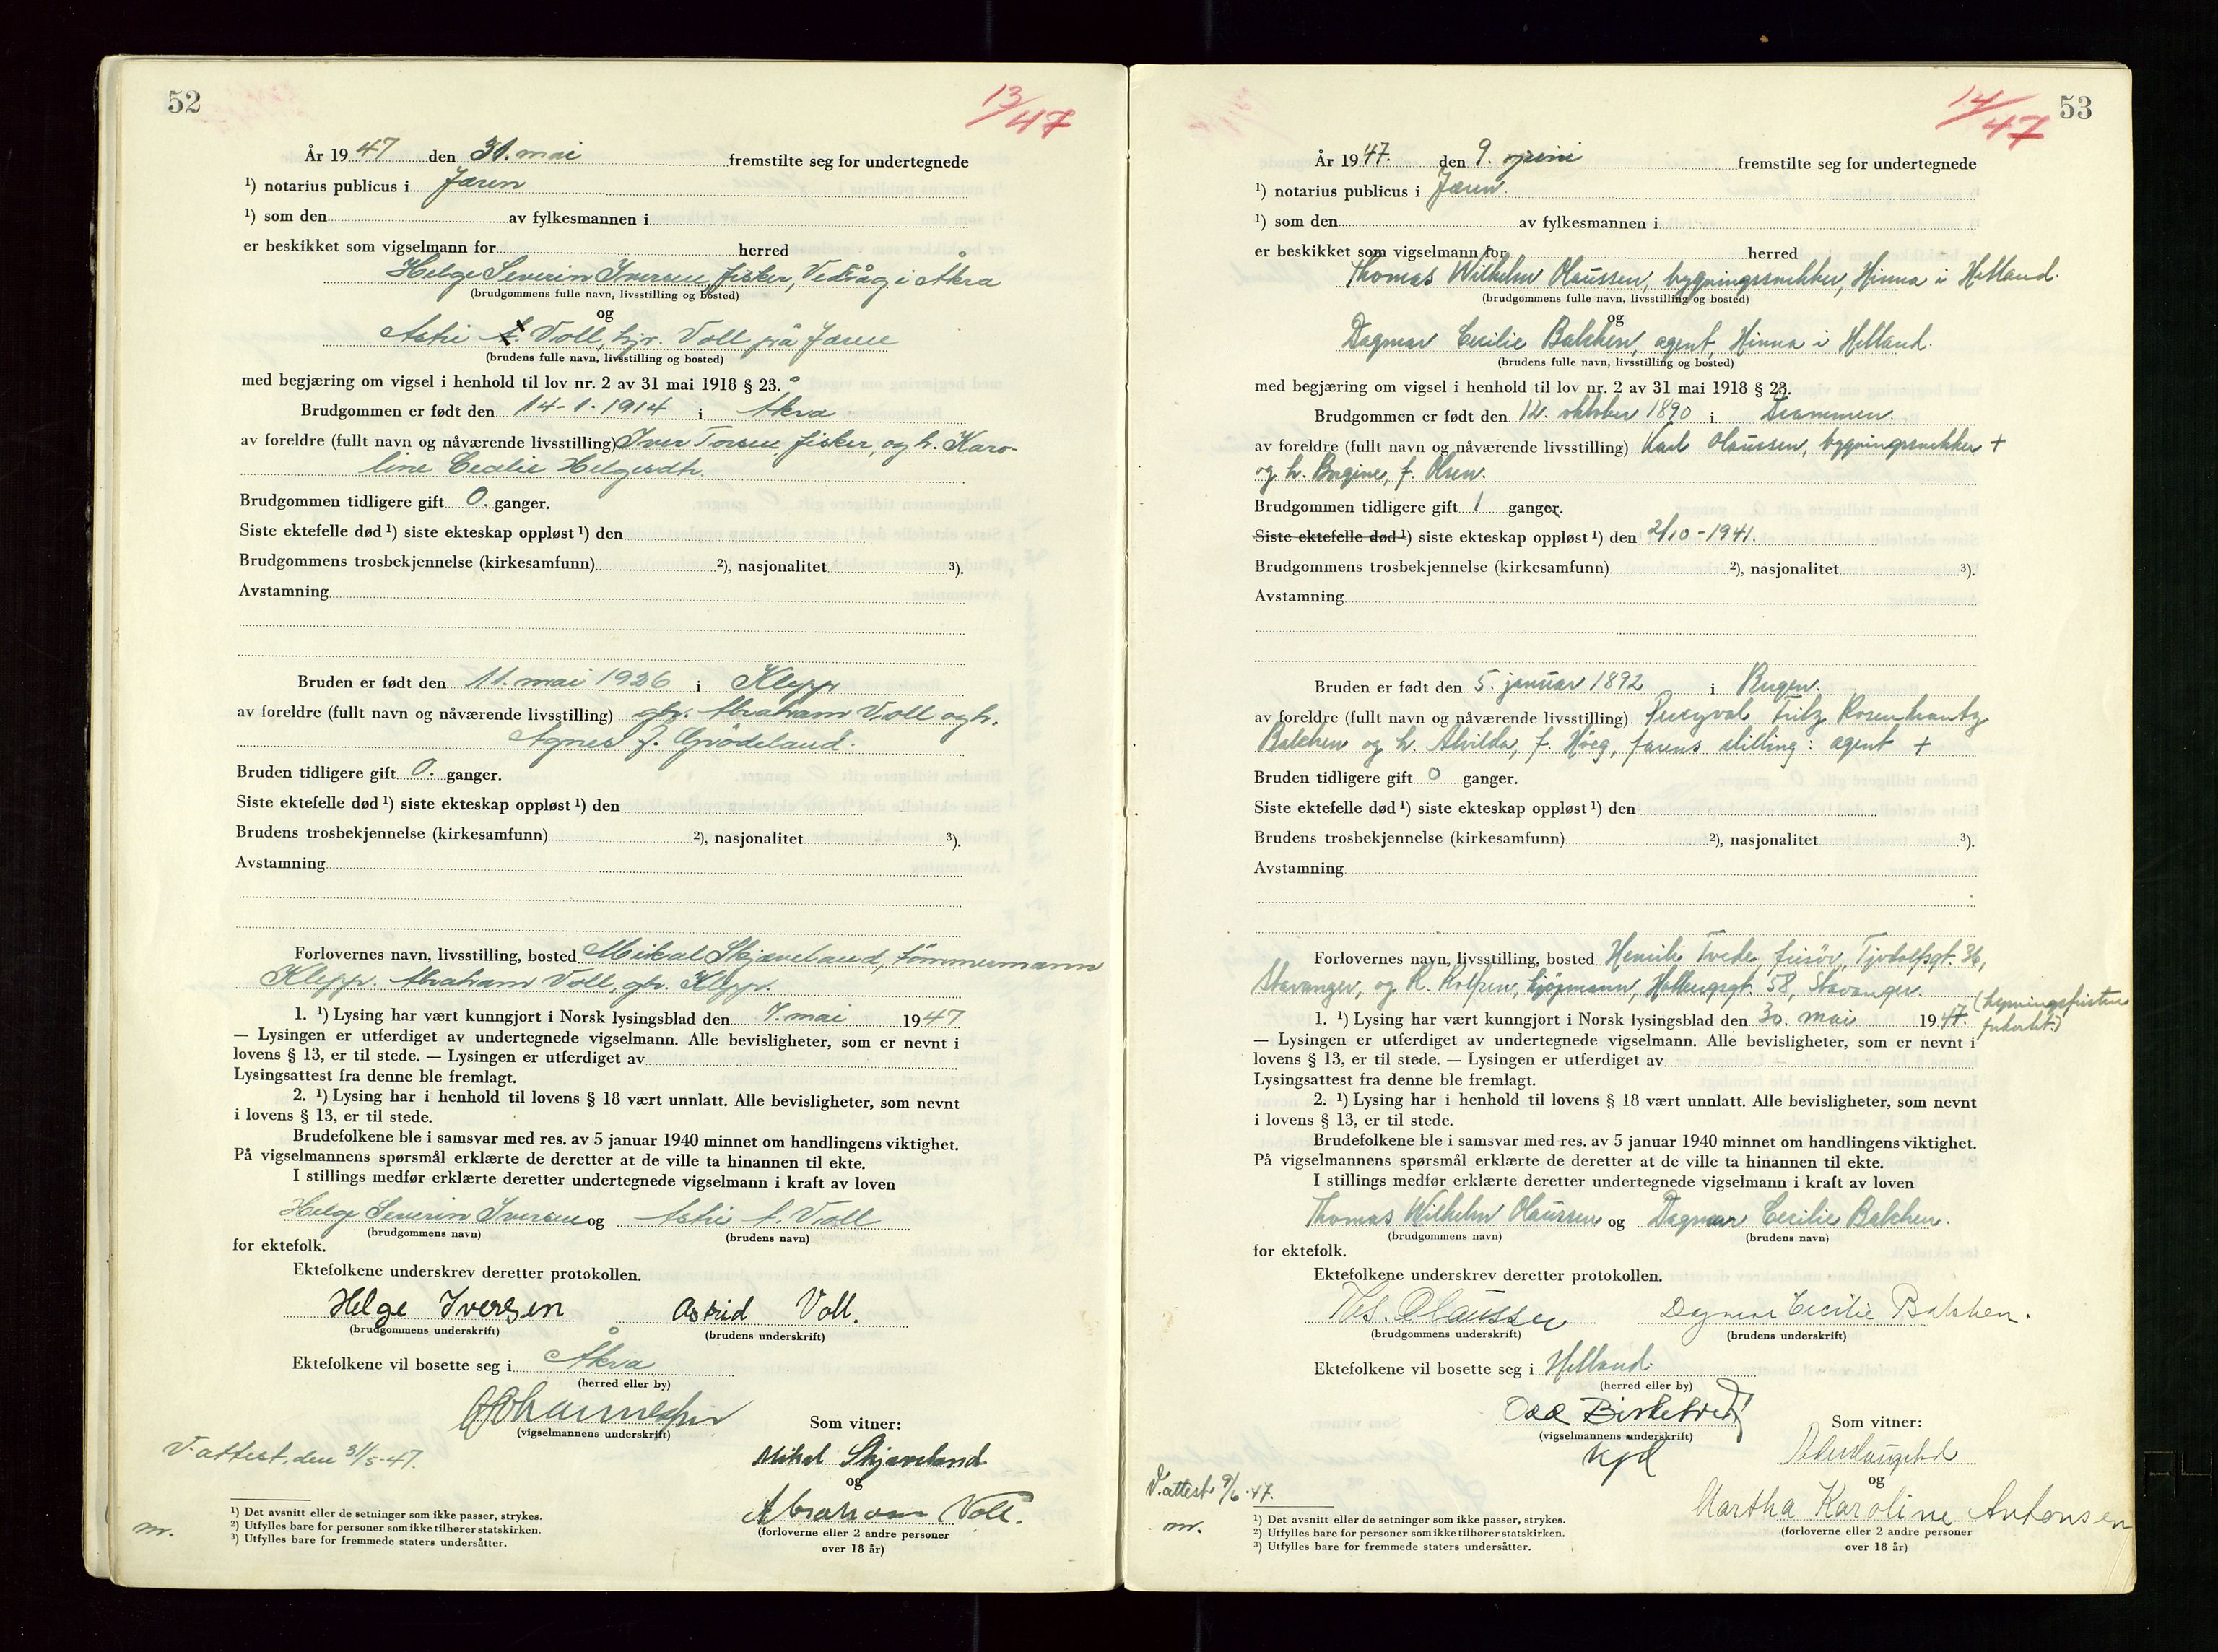 52
13/47
År 1947 den 31. mai fremstilte seg for undertegnede
¹) notarius publicus i Jæren
¹) som den av fylkesmannen i
er beskikket som vigselmann for herred
Helge Severin Iversen, fisker, Vedvåg i Åkra
(brudgommens fulle navn, livsstilling og bosted)
og
Astri A. Voll, hjv. Voll på Jæren
(brudens fulle navn, livsstilling og bosted)
med begjæring om vigsel i henhold til lov nr. 2 av 31 mai 1918 § 23.
Brudgommen er født den 14-1-1914 i Åkra
av foreldre (fullt navn og nåværende livsstilling) Iver Torsen, fisker, og h. Karo-
line Cecilie Helgesdtr.
Brudgommen tidligere gift 0. ganger.
Siste ektefelle død ¹) siste ekteskap oppløst ¹) den
Brudgommens trosbekjennelse (kirkesamfunn) ²), nasjonalitet ³).
Avstamning
Bruden er født den 11. mai 1926 i Klepp
av foreldre (fullt navn og nåværende livsstilling) gbr. Abraham Voll og h.
Agnes f. Grödeland.
Bruden tidligere gift 0. ganger.
Siste ektefelle død ¹) siste ekteskap oppløst ¹) den
Brudens trosbekjennelse (kirkesamfunn) ²), nasjonalitet ³).
Avstamning
Forlovernes navn, livsstilling, bosted Mikal Skjæveland, tömmermann
Klepp. Abraham Voll, gbr. Klepp.
1. ¹) Lysing har vært kunngjort i Norsk lysingsblad den 7. mai 1947
— Lysingen er utferdiget av undertegnede vigselmann. Alle bevisligheter, som er nevnt i
lovens § 13, er til stede. — Lysingen er utferdiget av
Lysingsattest fra denne ble fremlagt.
2. ¹) Lysing har i henhold til lovens § 18 vært unnlatt. Alle bevisligheter, som nevnt
i lovens § 13, er til stede.
Brudefolkene ble i samsvar med res. av 5 januar 1940 minnet om handlingens viktighet.
På vigselmannens spørsmål erklærte de deretter at de ville ta hinannen til ekte.
I stillings medfør erklærte deretter undertegnede vigselmann i kraft av loven
Helge Severin Iversen og Astri A. Voll
(brudgommens navn) (brudens navn)
for ektefolk.
Ektefolkene underskrev deretter protokollen.
Helge Iversen Astrid Voll.
(brudgommens underskrift) (brudens underskrift)
Ektefolkene vil bosette seg i Åkra
(herred eller by)
(vigselmannens underskrift)
Som vitner:
V.attest. den 31/5-47.
Mikal Skjæveland
og
Abraham Voll.
(forloverne eller 2 andre personer
over 18 år)
m.
¹) Det avsnitt eller de setninger som ikke passer, strykes.
²) Utfylles bare for personer som ikke tilhører statskirken.
³) Utfylles bare for fremmede staters undersåtter.
53
14/47
År 1947. den 9. juni fremstilte seg for undertegnede
¹) notarius publicus i Jæren.
¹) som den av fylkesmannen i
er beskikket som vigselmann for herred
Thomas Wilhelm Olaussen, bygningssnekker, Hinna i Hetland.
(brudgommens fulle navn, livsstilling og bosted)
og
Dagmar Cecilie Balchen, agent, Hinna i Hetland.
(brudens fulle navn, livsstilling og bosted)
med begjæring om vigsel i henhold til lov nr. 2 av 31 mai 1918 § 23.
Brudgommen er født den 12. oktober 1890 i Drammen.
av foreldre (fullt navn og nåværende livsstilling) Karl Olaussen, bygningssnekker +
og h. Bergine, f. Olsen.
Brudgommen tidligere gift 1 ganger.
Siste ektefelle død ¹) siste ekteskap oppløst ¹) den 2/10-1941.
Brudgommens trosbekjennelse (kirkesamfunn) ²), nasjonalitet ³).
Avstamning
Bruden er født den 5. januar 1892 i Bergen.
av foreldre (fullt navn og nåværende livsstilling) Percyval Fritz Rosenkrantz
Balchen og h. Alvilda, f. Höeg, farens stilling: agent +
Bruden tidligere gift 0 ganger.
Siste ektefelle død ¹) siste ekteskap oppløst ¹) den
Brudens trosbekjennelse (kirkesamfunn) ²), nasjonalitet ³).
Avstamning
Forlovernes navn, livsstilling, bosted Henrik Tvede, frisör, Tjodolfsgt. 36,
Stavanger, og R. Rolfsen, kjöpmann, Holbergsgt. 58, Stavanger.
(Lysningsfristen
forkortet.)
1. ¹) Lysing har vært kunngjort i Norsk lysingsblad den 30. mai 1947.
— Lysingen er utferdiget av undertegnede vigselmann. Alle bevisligheter, som er nevnt i
lovens § 13, er til stede. — Lysingen er utferdiget av
Lysingsattest fra denne ble fremlagt.
2. ¹) Lysing har i henhold til lovens § 18 vært unnlatt. Alle bevisligheter, som nevnt
i lovens § 13, er til stede.
Brudefolkene ble i samsvar med res. av 5 januar 1940 minnet om handlingens viktighet.
På vigselmannens spørsmål erklærte de deretter at de ville ta hinannen til ekte.
I stillings medfør erklærte deretter undertegnede vigselmann i kraft av loven
Thomas Wilhelm Olaussen og Dagmar Cecilie Balchen.
(brudgommens navn) (brudens navn)
for ektefolk.
Ektefolkene underskrev deretter protokollen.
Ths. Olaussen Dagmar Cecilie Balchen.
(brudgommens underskrift) (brudens underskrift)
Ektefolkene vil bosette seg i Hetland.
(herred eller by)
(vigselmannens underskrift)
kjd
Som vitner:
og
Martha Karoline Antonsen
(forloverne eller 2 andre personer
over 18 år)
V.attest. 9/6-47.
m.
¹) Det avsnitt eller de setninger som ikke passer, strykes.
²) Utfylles bare for personer som ikke tilhører statskirken.
³) Utfylles bare for fremmede staters undersåtter.